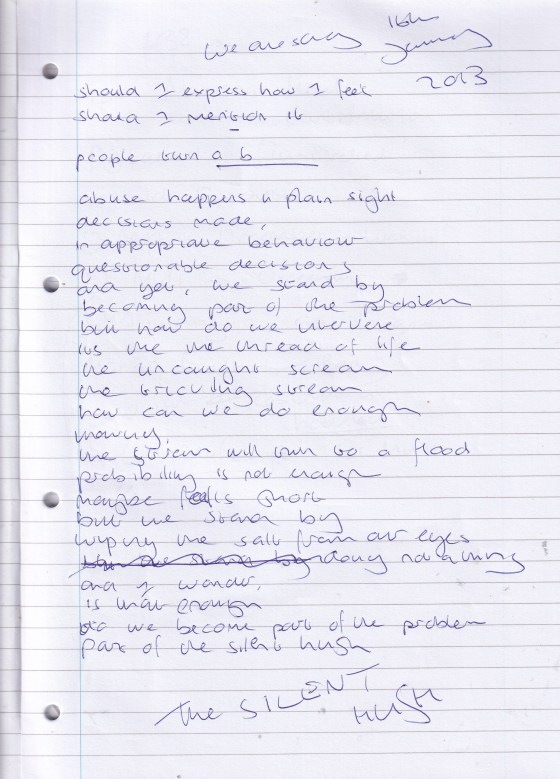 Wednesday 16th
January
2013
should I express how I feel
should I mention it
people turn a b
abuse happens in plain sight
decisions made,
in appropriate behaviour
questionable decisions
and yet, we stand by
becoming part of the problem
but how do we intervene
its like the thread of life
the uncaught scream
the trickling stream
how can we do enough
knowing,
the stream will turn to a flood
probibility is not enough
maybe falls short
but we stand by
wiping the salt from our eyes
doing nothing
and I wonder,
is that enough
do we become part of the problem
part of the silent hush
The SILENT
HUSH